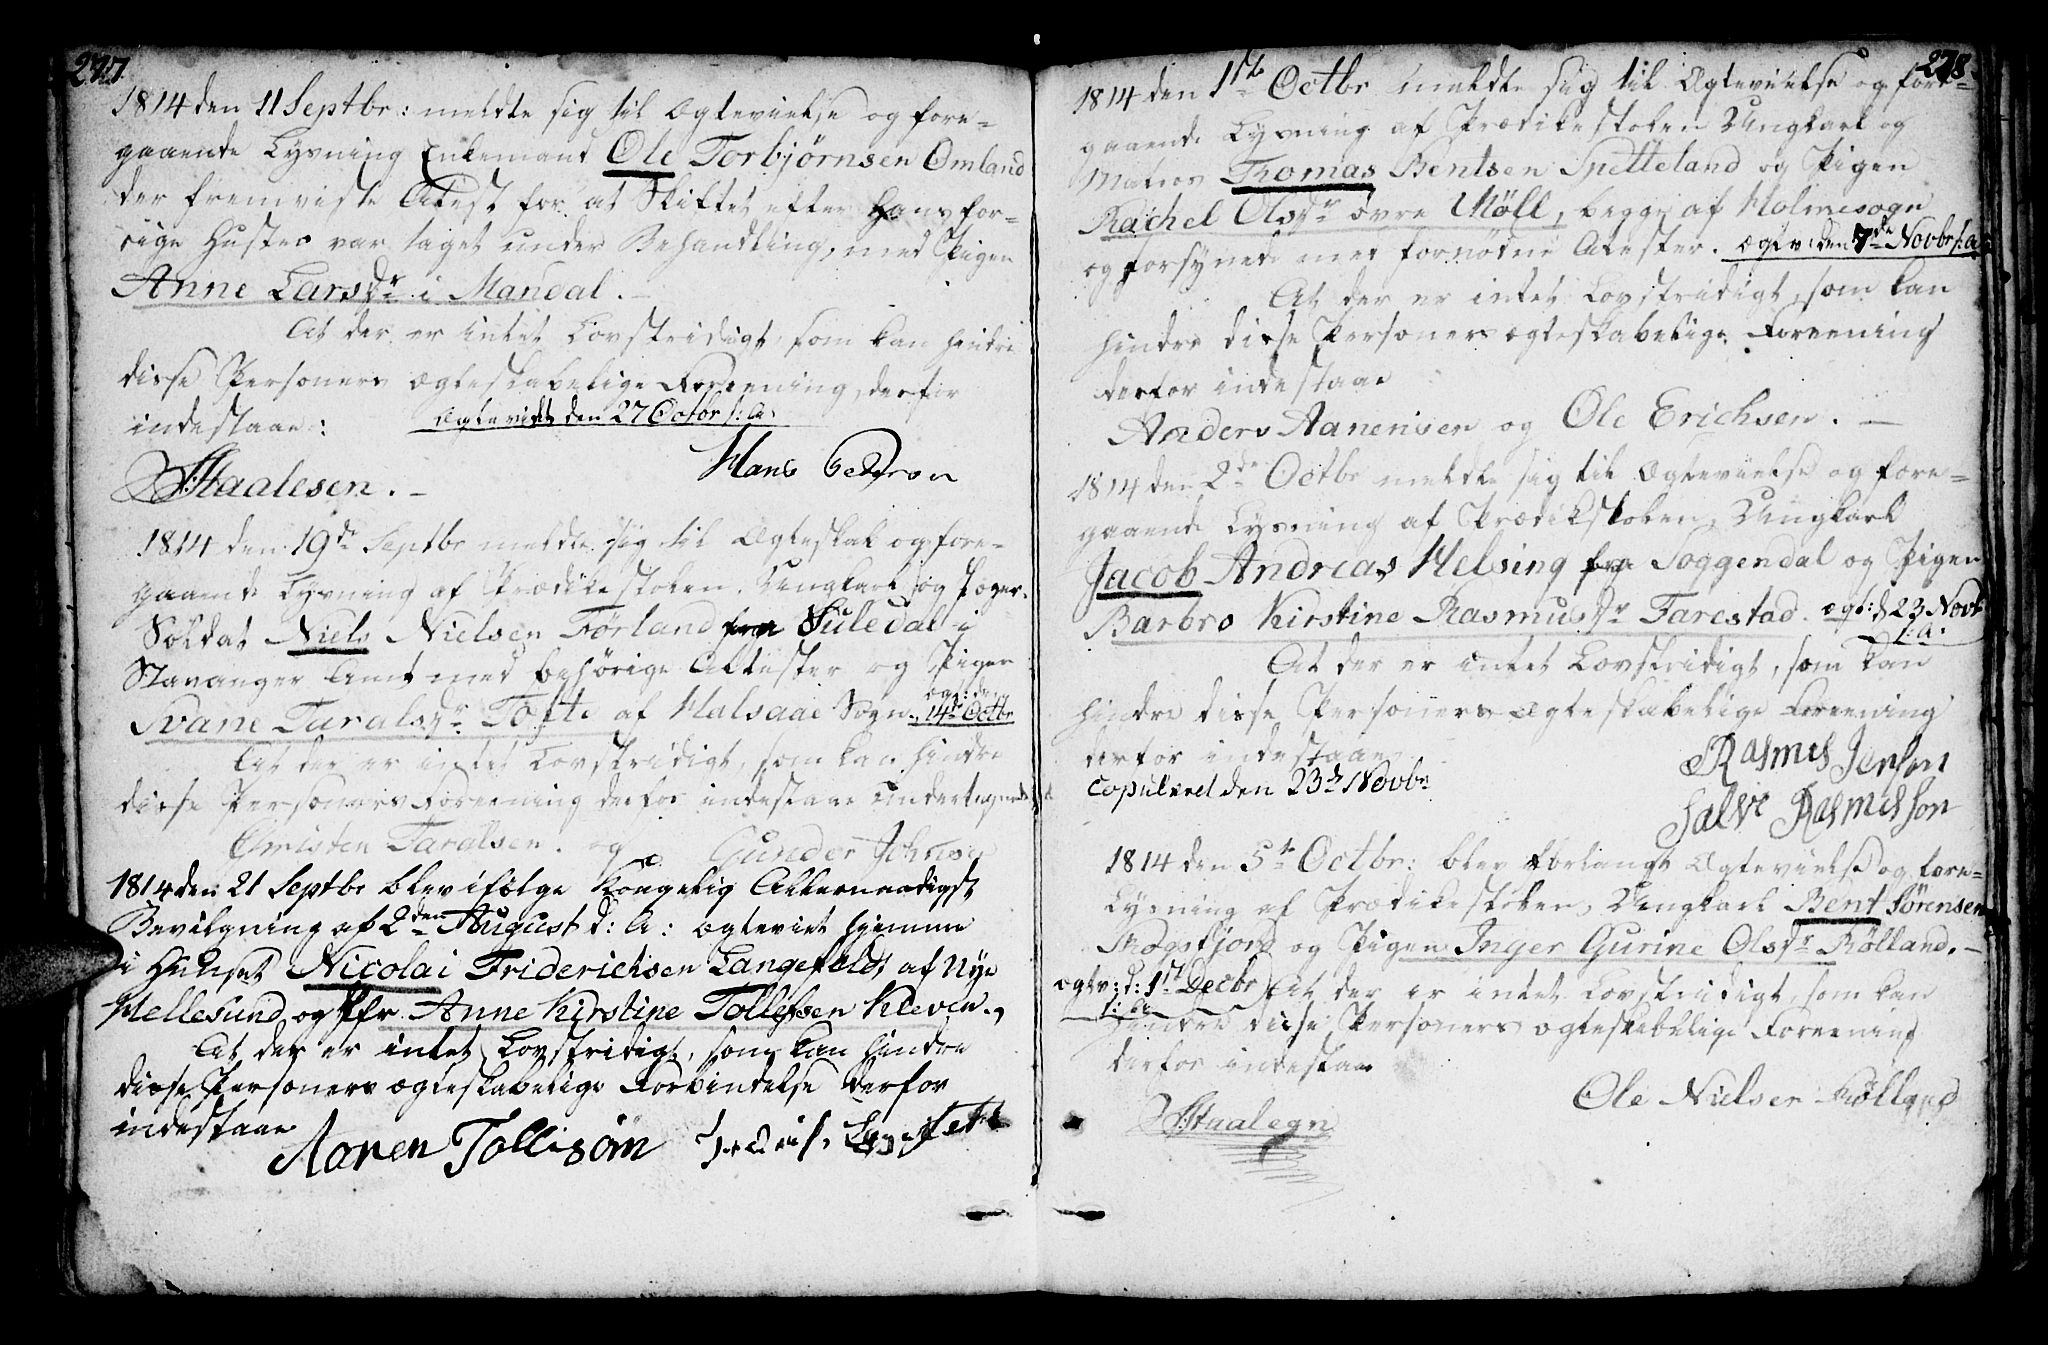 277
1814 den 11 Septbr: meldte sig til Ægtevielse og fore-
gaaende Lysning Enkemand Ole Torbjørnsen Omland
der fremviste Atest for at Skiftet efter Hans for-
rige Hustro var taget under Behandling, med Pigen
Anne Larsdr i Mandal.
At der er intet Lovstridigt, som kan hindre
disse Personers ægteskabelige Foreening, derfor
indestaae:
Ægteviet den 27 Octbr s: A:
Hans Pedersen
S: Staalesen.
1814 den 19de Septbr meldte sig til Ægteskab og fore-
gaaende Lysning af Prædikestolen, Ungkarl og Jæger-
Soldat Niels Nielsen Førland fra Suledal i
Stavanger Amt med behørige Attester og Pigen
Svane Taralsdr Tofte af Halsaae Sogn. ægt: d: 14de Octbr
At der er intet Lovstridigt, som kan hindre
disse Personers Foreening derfor indestaae undertegnede
Christen Taralsen. og Gunder Johnsen
1814 den 21 Septbr blev ifølge Kongelig Allernaadigst
Bevilgning af 2den August d: A: ægteviet hjemme
i Huuset Nicolai Friderichsen Langefeldt, af Nye
Hellesund, og Jfr. Anne Kirstine Tollefsen Kleven.
At der er intet Lovstridigt, som kan hindre
disse Personers ægteskabelige Forbindelse derfor
indestaae
Aaren Tollisøn
278
1814 den 1ste Octbr meldte sig til Ægtevielse og fore-
gaaende Lysning af Prædikestolen Ungkarl og
Matros Thomas Bentsen Spetteland og Pigen
Rachel Olsdr øvre Møll, begge af Holmesogn
og forsynede med fornødne Atester. ægtv: den 7de Novbr s: A:
At der er intet Lovstridigt, som kan
hindre disse Personers ægteskabelige Foreening
derfor indestaae
Anders Aanensen og Ole Erichsen.
1814 den 2de Octbr meldte sig til Ægtevielse og fore-
gaaende Lysning af Prædikestolen, Ungkarl
Jacob Andreas Helsing fra Soggendal og Pigen
Barbro Kirstine Rasmusdr Farestad. ægt: d 23 Novb
s: A:
At der er intet Lovstridigt, som kan
hindre disse Personers ægteskabelige Foreening
derfor indestaae
Rasmus Jensen
Copuleret den 23de Novbr
Salve Rasmussøn
1814 den 5te Octbr: blev forlangt Ægtevielse og fore-
Lysning af Prædikestolen, Ungkarl Bent Sørensen
Skogsfjord og Pigen Inger Gurine Olsdr Rølland.
ægtv: d: 1ste Decbr s: A:
At der er intet Lovstridigt, som kan
hindre disse Personers ægteskabelige Foreening
derfor indestaae
Ole Nielsen Rølland
S: Staalesen